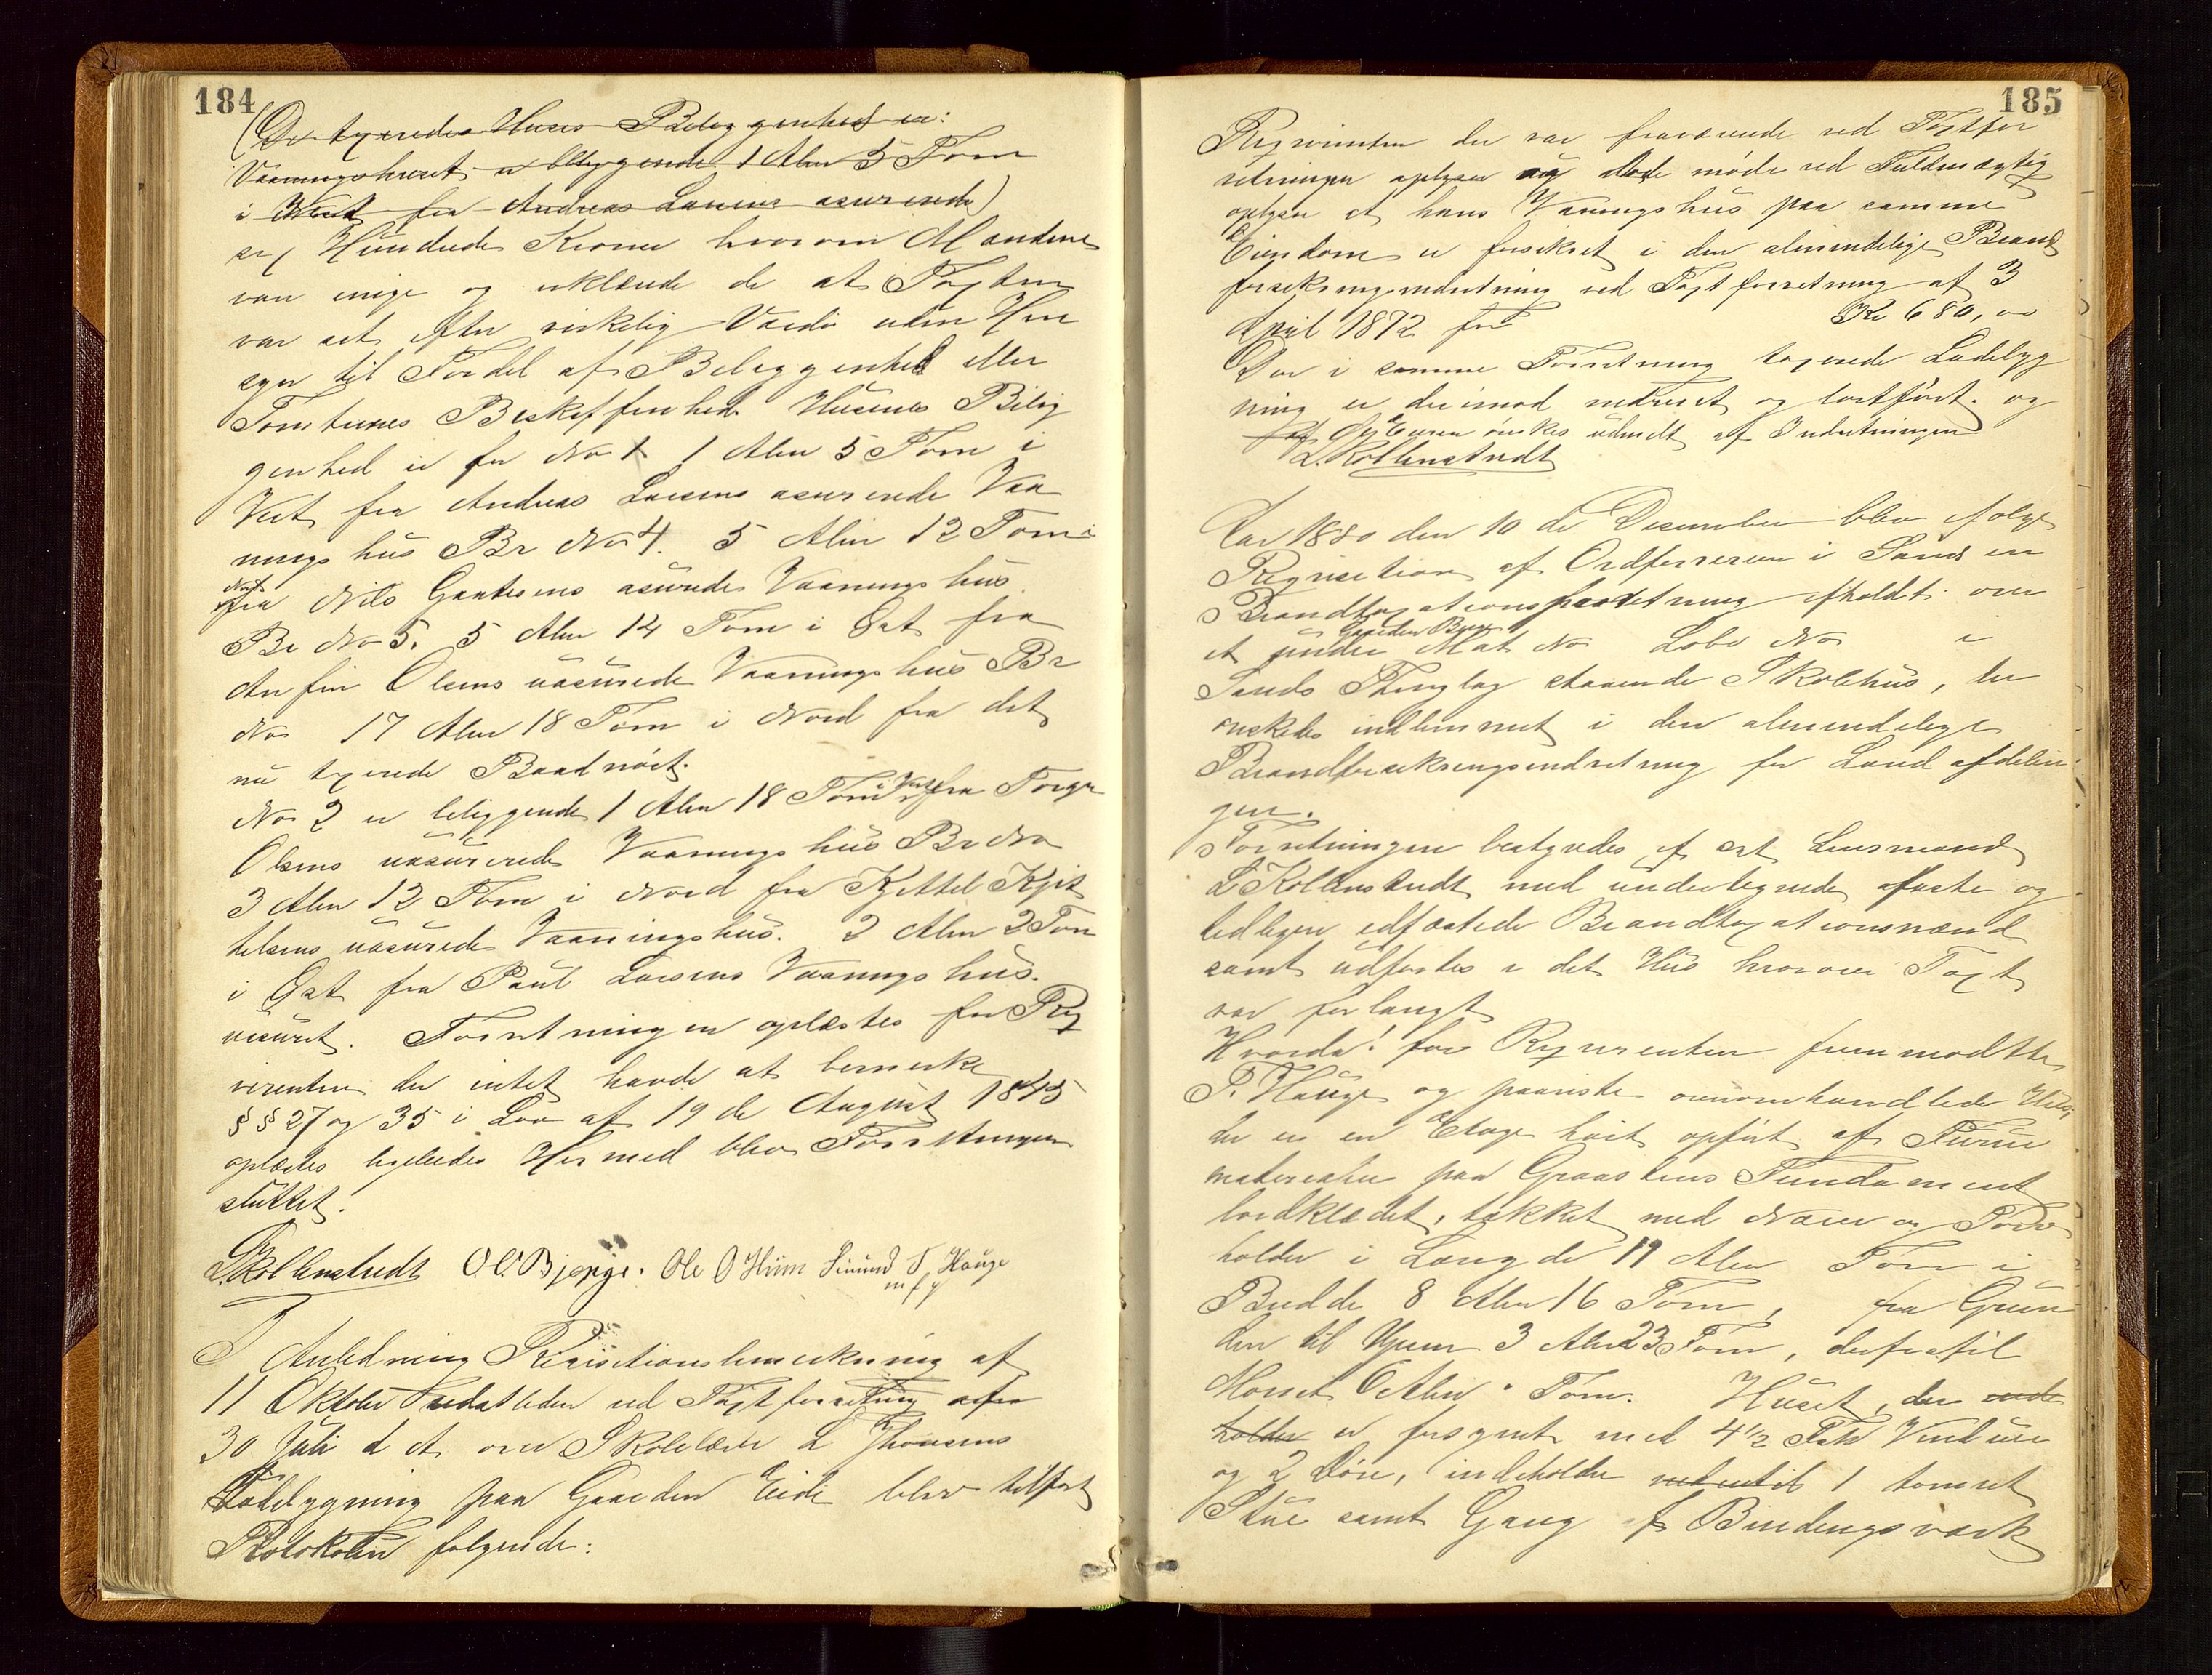 184
(De taxerede Huses Beliggenhed er:
Vaaningshuset er beliggende 1 Alen 5 Tom
i Vest fra Andreas Larsens asurerede)
er, Hundrede Kroner hvorom Mændene
var enige og erklærede de at Taxten
var sat efter virkelig Værdi uden Hen
syn til Fordel af Beliggenhed eller
Tomternes Beskaffenhed. Husenes Belig
genhed er for No 1 1 Alen 5 Tom i
Vest fra Andreas Larsens asurerede Vaa
nings hus Br No 4. 5 Alen 12 Tom i
Nord fra Nils Gautesens asurede Vaanings hus
Br No 5. 5 Alen 14 Tom i Øst fra
Anfin Olsens uasurede Vaanings hus Br
No 17 Alen 18 Tom i Nord fra det
nu taxerede Baadnöst.
No 2 er beliggende 1 Alen 18 Tom i Vest fra Torger
Olsens uasurerede Vaanings hus Br No
3 Alen 12 Tom i Nord fra Kjettel Kjit
telsens uasurede Vaaningshus. 2 Alen 2 Tom
i Øst fra Paul Larsens Vaanings hus.
uasuret. Forretningen oplæstes for Req
virenten der intet havde at bemærke
§ § 27 og 35 i Lov af 19 de August 1845
oplæstes ligeledes Hermed blev Forretningen
sluttet.
L. Kollenstredt O. O. Bjerge. Ole O Hiim Simund T. Hauge
m f p
I Anledning Reqvisitionsbemærkning af
11 Oktober sidstleden ved Taxtforretning af
30 Juli d A over Skolelærer L Thorsens
Ladebygning paa Gaarden Eide blev tilført
Protokolen følgende:
185
Reqvirenten der var fraværende ved Taxtfor
retningen oplyser og lod møde ved Fuldmægtig
oplyser at hans Vaaningshus paa samme
Eiendom er forsikret i den almindelige Brand
forsikringsindretning ved Taxtforretning af 3
April 1872 for Kr 680,00
Den i samme Forretning taxerede Ladebyg
ning er derimod nedrevet og bortført. og
af Eieren ønskes udmeldt af Indretningen
L. Kollenstredt
Aar 1880 den 10 de Desember blev efter
Reqvisition af Ordføreren i Sand en
Brandtaxationsforretning afholdt over
et under Gaarden Mat No Løbe No i
Sands Thinglag staaende Skolehus, der
ønskedes indlemmet i den almindelige
Brandforsikringsindretning for Land afdelin
gen.
Forretningen bestyredes af sat Lensmand
L Kollenstredt med undertegnede faste og
ledligen edfæstede Brandtaxationsmænd
samt udførtes i det Hus hvorover Taxt
var forlangt
Hvorda! for Reqvirenten fremmødte
P. Hauge og paaviste ovenomhandlede Hus,
der er en Etage høit opført af Furue
materialer paa Graastens Fundament
bordklædet, tækket med Næver og Torv
holder i Længde 11 Alen Tom i
Bredde 8 Alen 16 Tom, fra Grun
den til Gesims 3 Alen 23 Tom, derfra til
Mønet 6 Alen " Tom. Huset, der inde
holder er forsynet med 4 1/2 Fak Vinduer
og 2 Döre, indeholder nedentil 1 tømret
Stue samt Gang af Bindingsværk